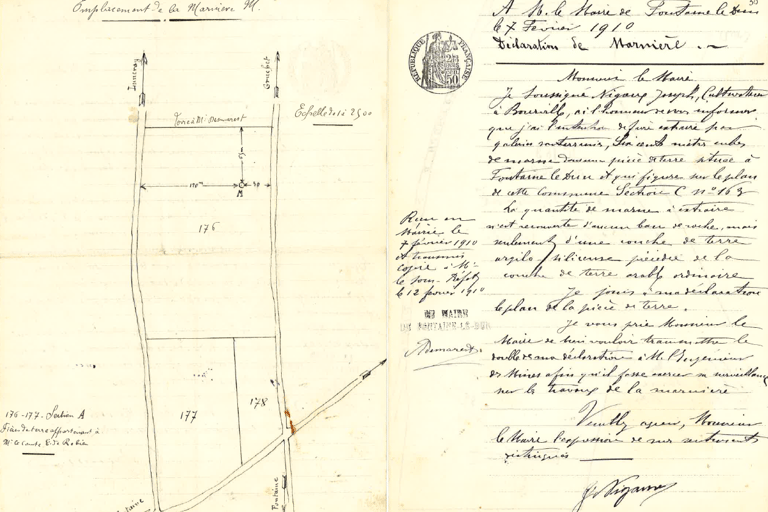 Emplacement de la Marnière M.
Gruchet
Echelle de 1 à 2500
Terre à Mr Demarest
110m
30
M
176
177
178
176-177. Section A
Pièces de terre appartenant à
Mr le Comte
Fontaine
A M. le Maire de Fontaine le Dun
le 7 Février 1910
Déclaration de Marnière.
RÉPUBLIQUE FRANÇAISE
50
Monsieur le Maire
Je soussigné Joseph, Cultivateur
à Bourville, ai l'honneur de vous informer
que j'ai l'intention de faire extraire par
galerie souterraine, mètres cubes
de marne dans une pièce de terre située à
Fontaine le Dun et qui figure sur le plan
de cette commune Section C No 163
La quantité de marne à extraire
n'est recouverte d'aucun banc de roche, mais
seulement d'une couche de terre
argilo siliceuse précédée de la
couche de terre arable ordinaire
Je joins à ma déclaration
le plan de la pièce de terre.
Je vous prie Monsieur le
Maire de bien vouloir transmettre le
double de ma déclaration à M. l'Ingénieur
des Mines afin qu'il fasse exercer sa surveillance
sur les travaux de la marnière
Veuillez agréer, Monsieur
le Maire l'expression de mes sentiments
distingués
Reçu en
Mairie le
7 février 1910
et transmis
copie à Mr
le Sous-Préfet
le 12 février 1910
MAIRIE
DE FONTAINE-LE-DUN
Demarest